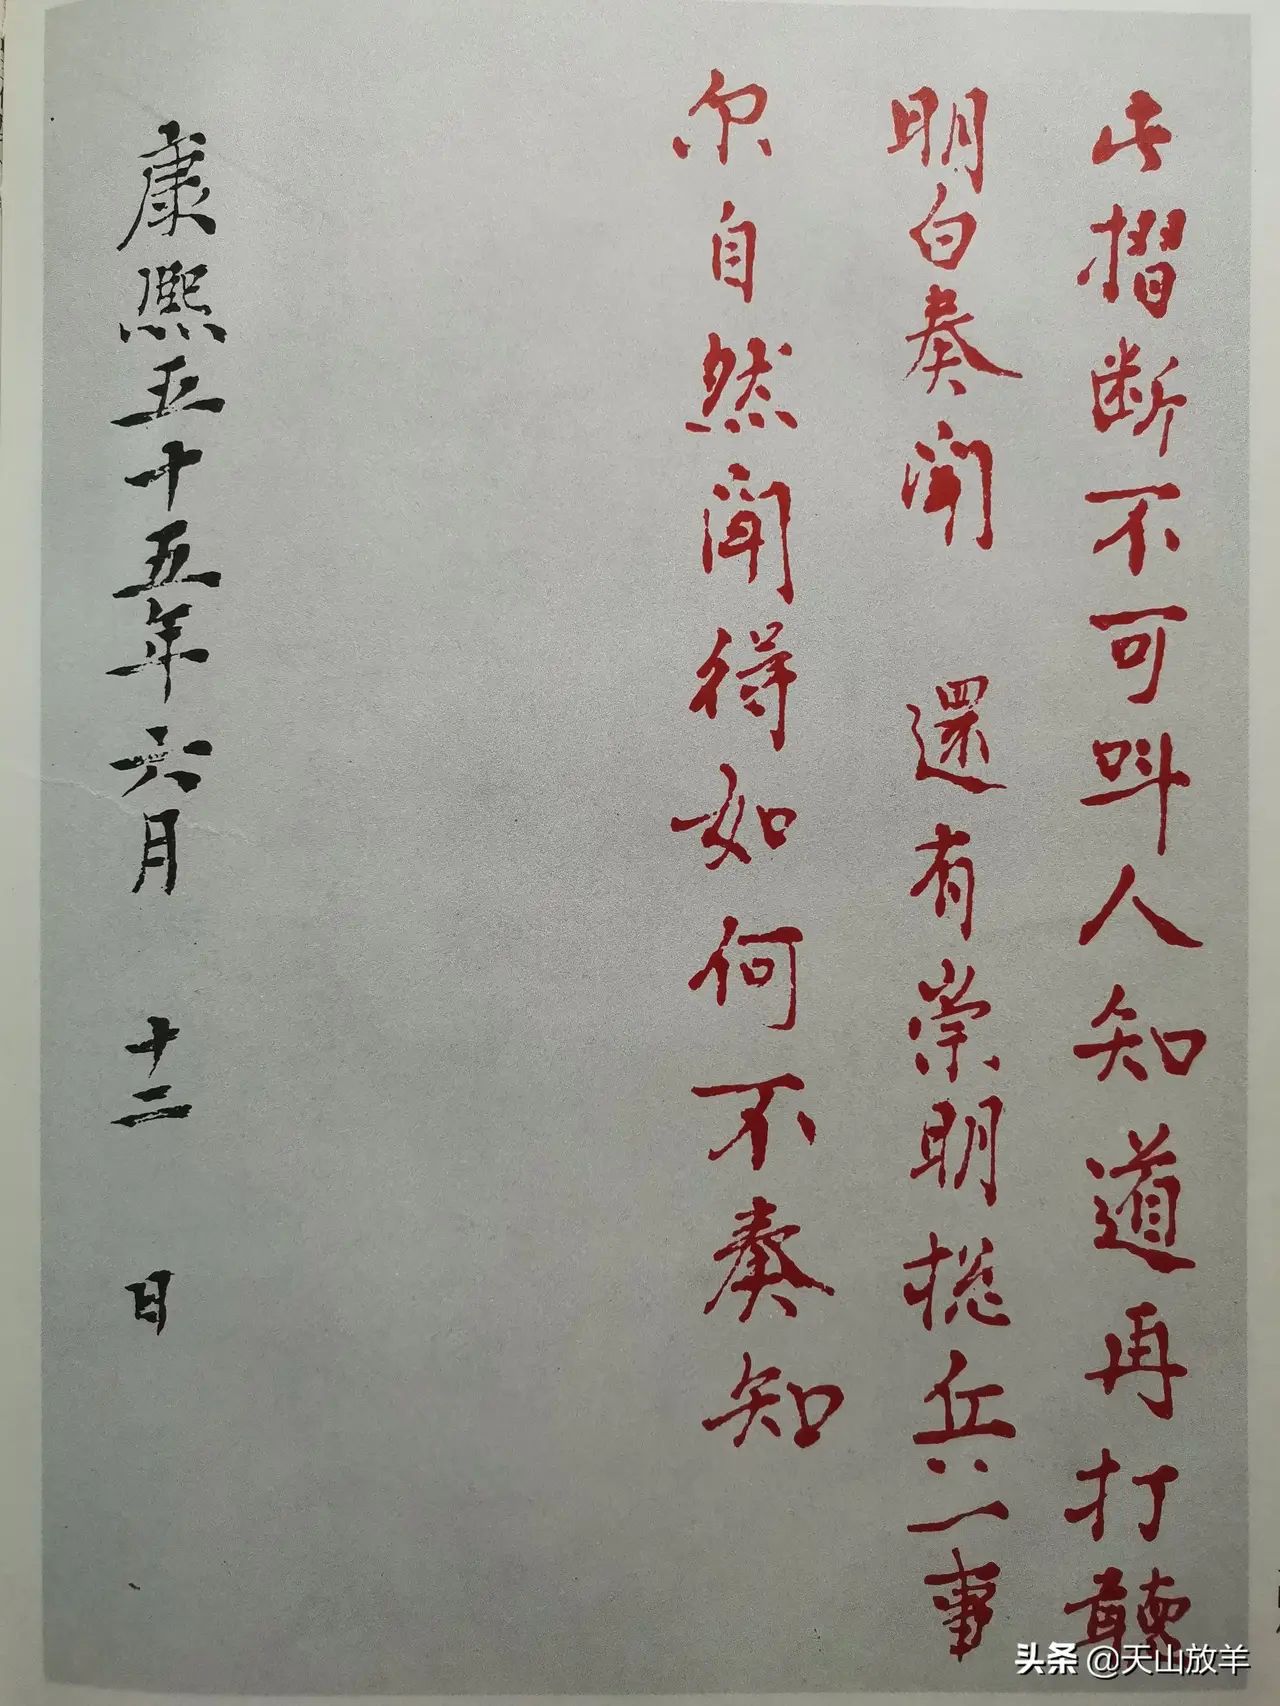 此摺断不可呌人知道再打聽
明白奏聞 還有崇明捴兵一事
尔自然聞得如何不奏知
康熙五十五年六月 十二 日
头条 @天山放羊